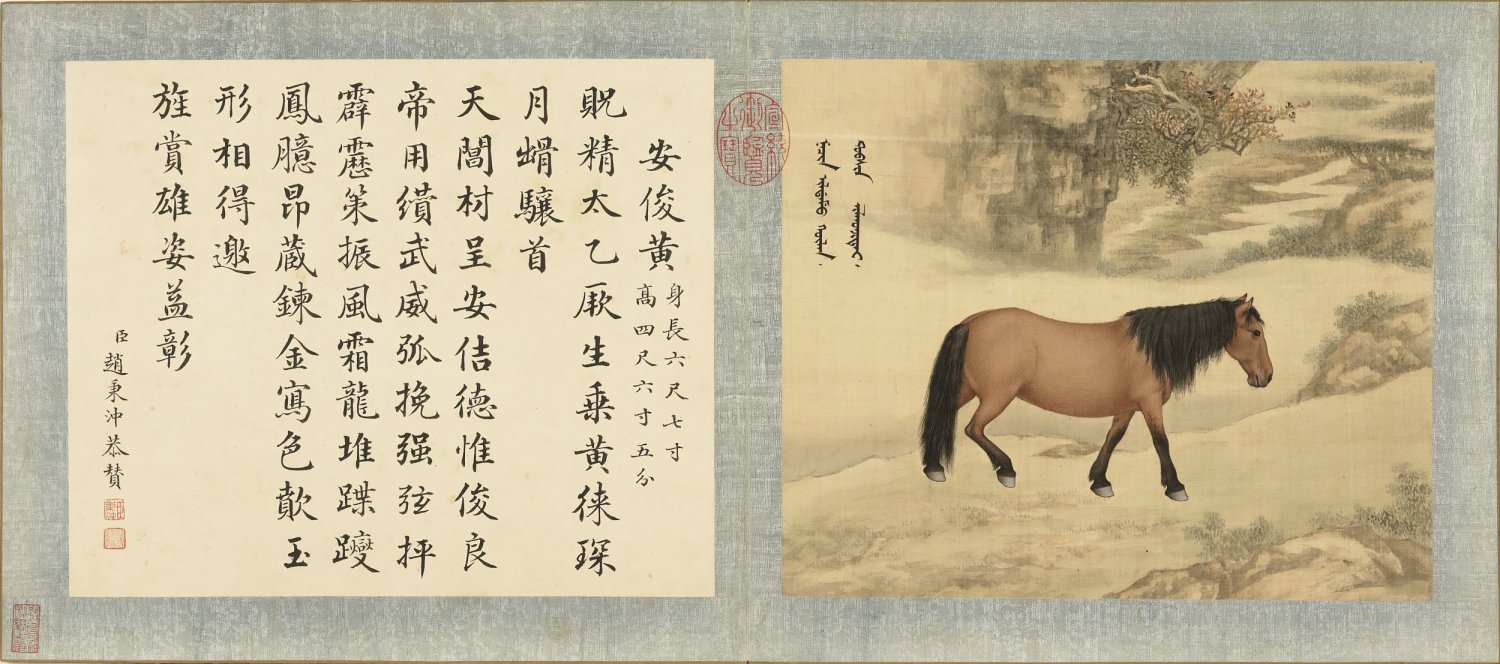 安俊黃
身長六尺七寸
高四尺六寸五分
貺精太乙厥生乗黄徠琛
月驤首
天閶材呈安佶德惟俊良
帝用纘武威弧挽强弦抨
霹靂策振風霜龍堆蹀躞
鳳臆昂蔵鍊金寫色歕玉
形相得邀
旌賞雄姿益彰
臣趙秉沖恭贊
宣統御覽之寶